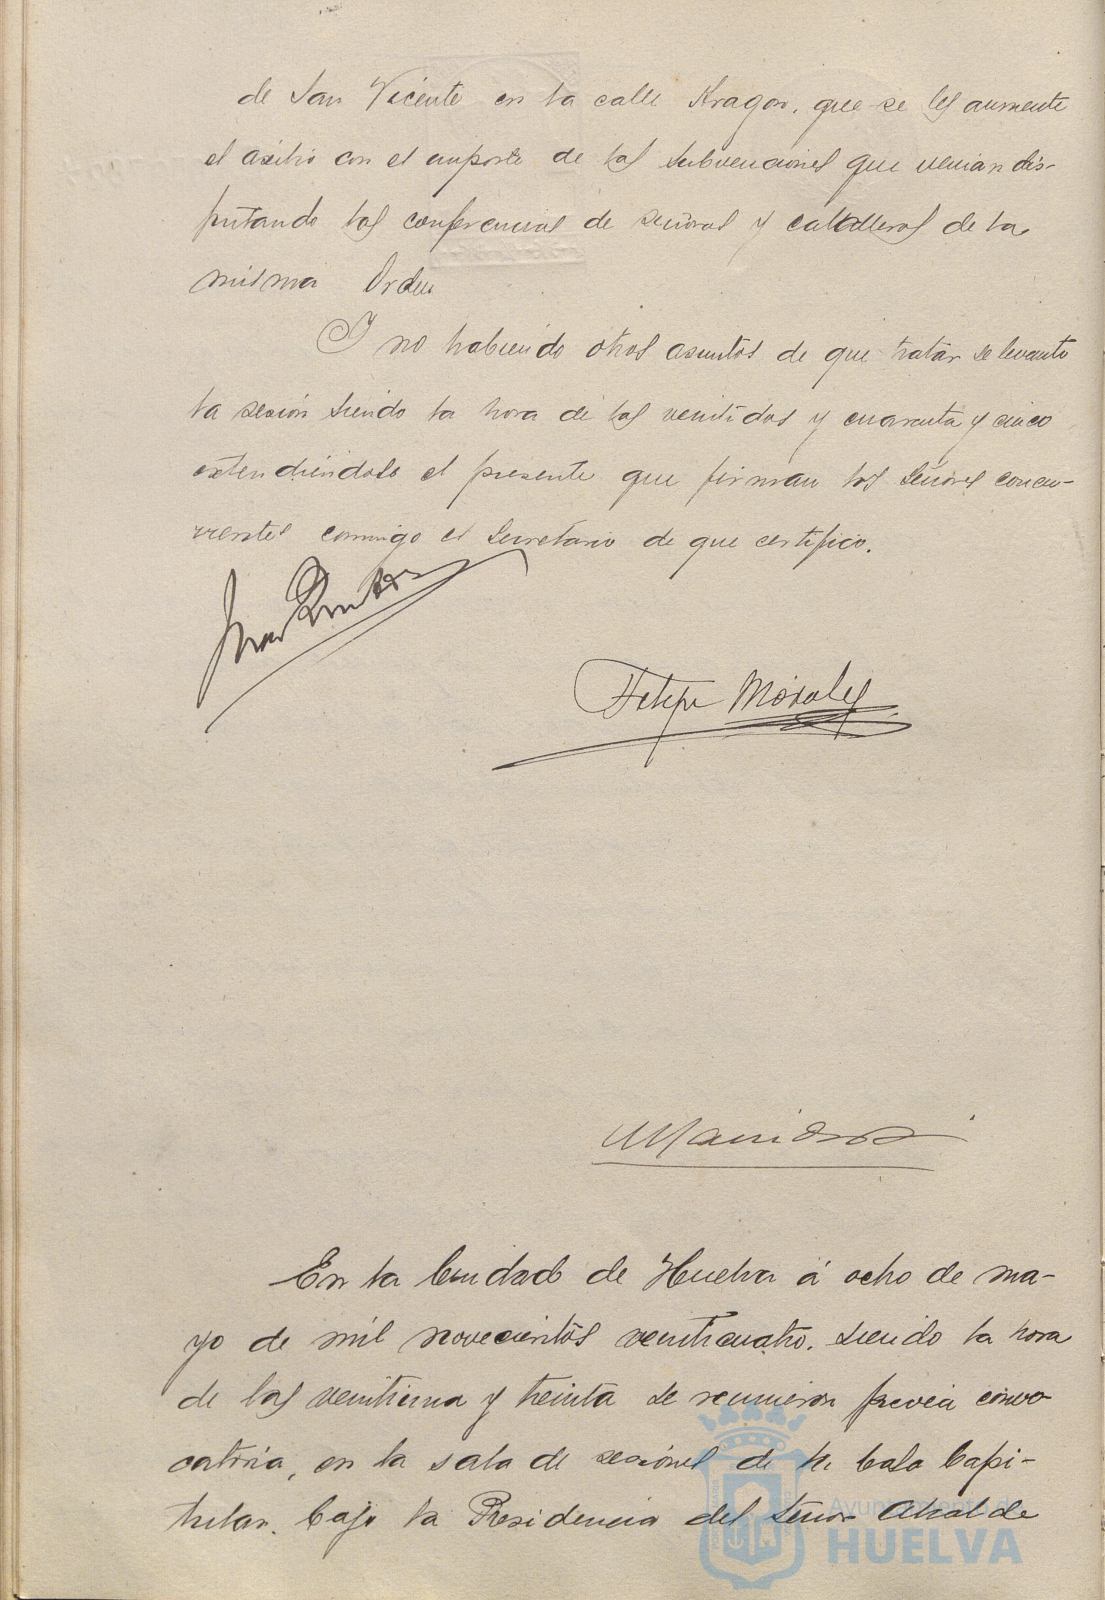 de San Vicente en la calle Aragon, que se les aumente
el asilio con el importe de las subvenciones que venian dis-
putando las conferencias de señoras y caballeros de la
misma Orden
Y no habiendo otros asuntos de que tratar se levanto
la sesión siendo la hora de las veintidos y cuarenta y cinco
extendiéndose el presente que firman los Señores concu-
rrentes conmigo el Secretario de que certifico.
Felipe Morales
En la Ciudad de Huelva á ocho de ma-
yo de mil novecientos veinticuatro, siendo la hora
de las veintiuna y treinta se reunieron previa convo-
catoria, en la sala de sesiones de la Casa Capi-
tular, bajo la Presidencia del Señor Alcalde
Ayuntamiento de
HUELVA